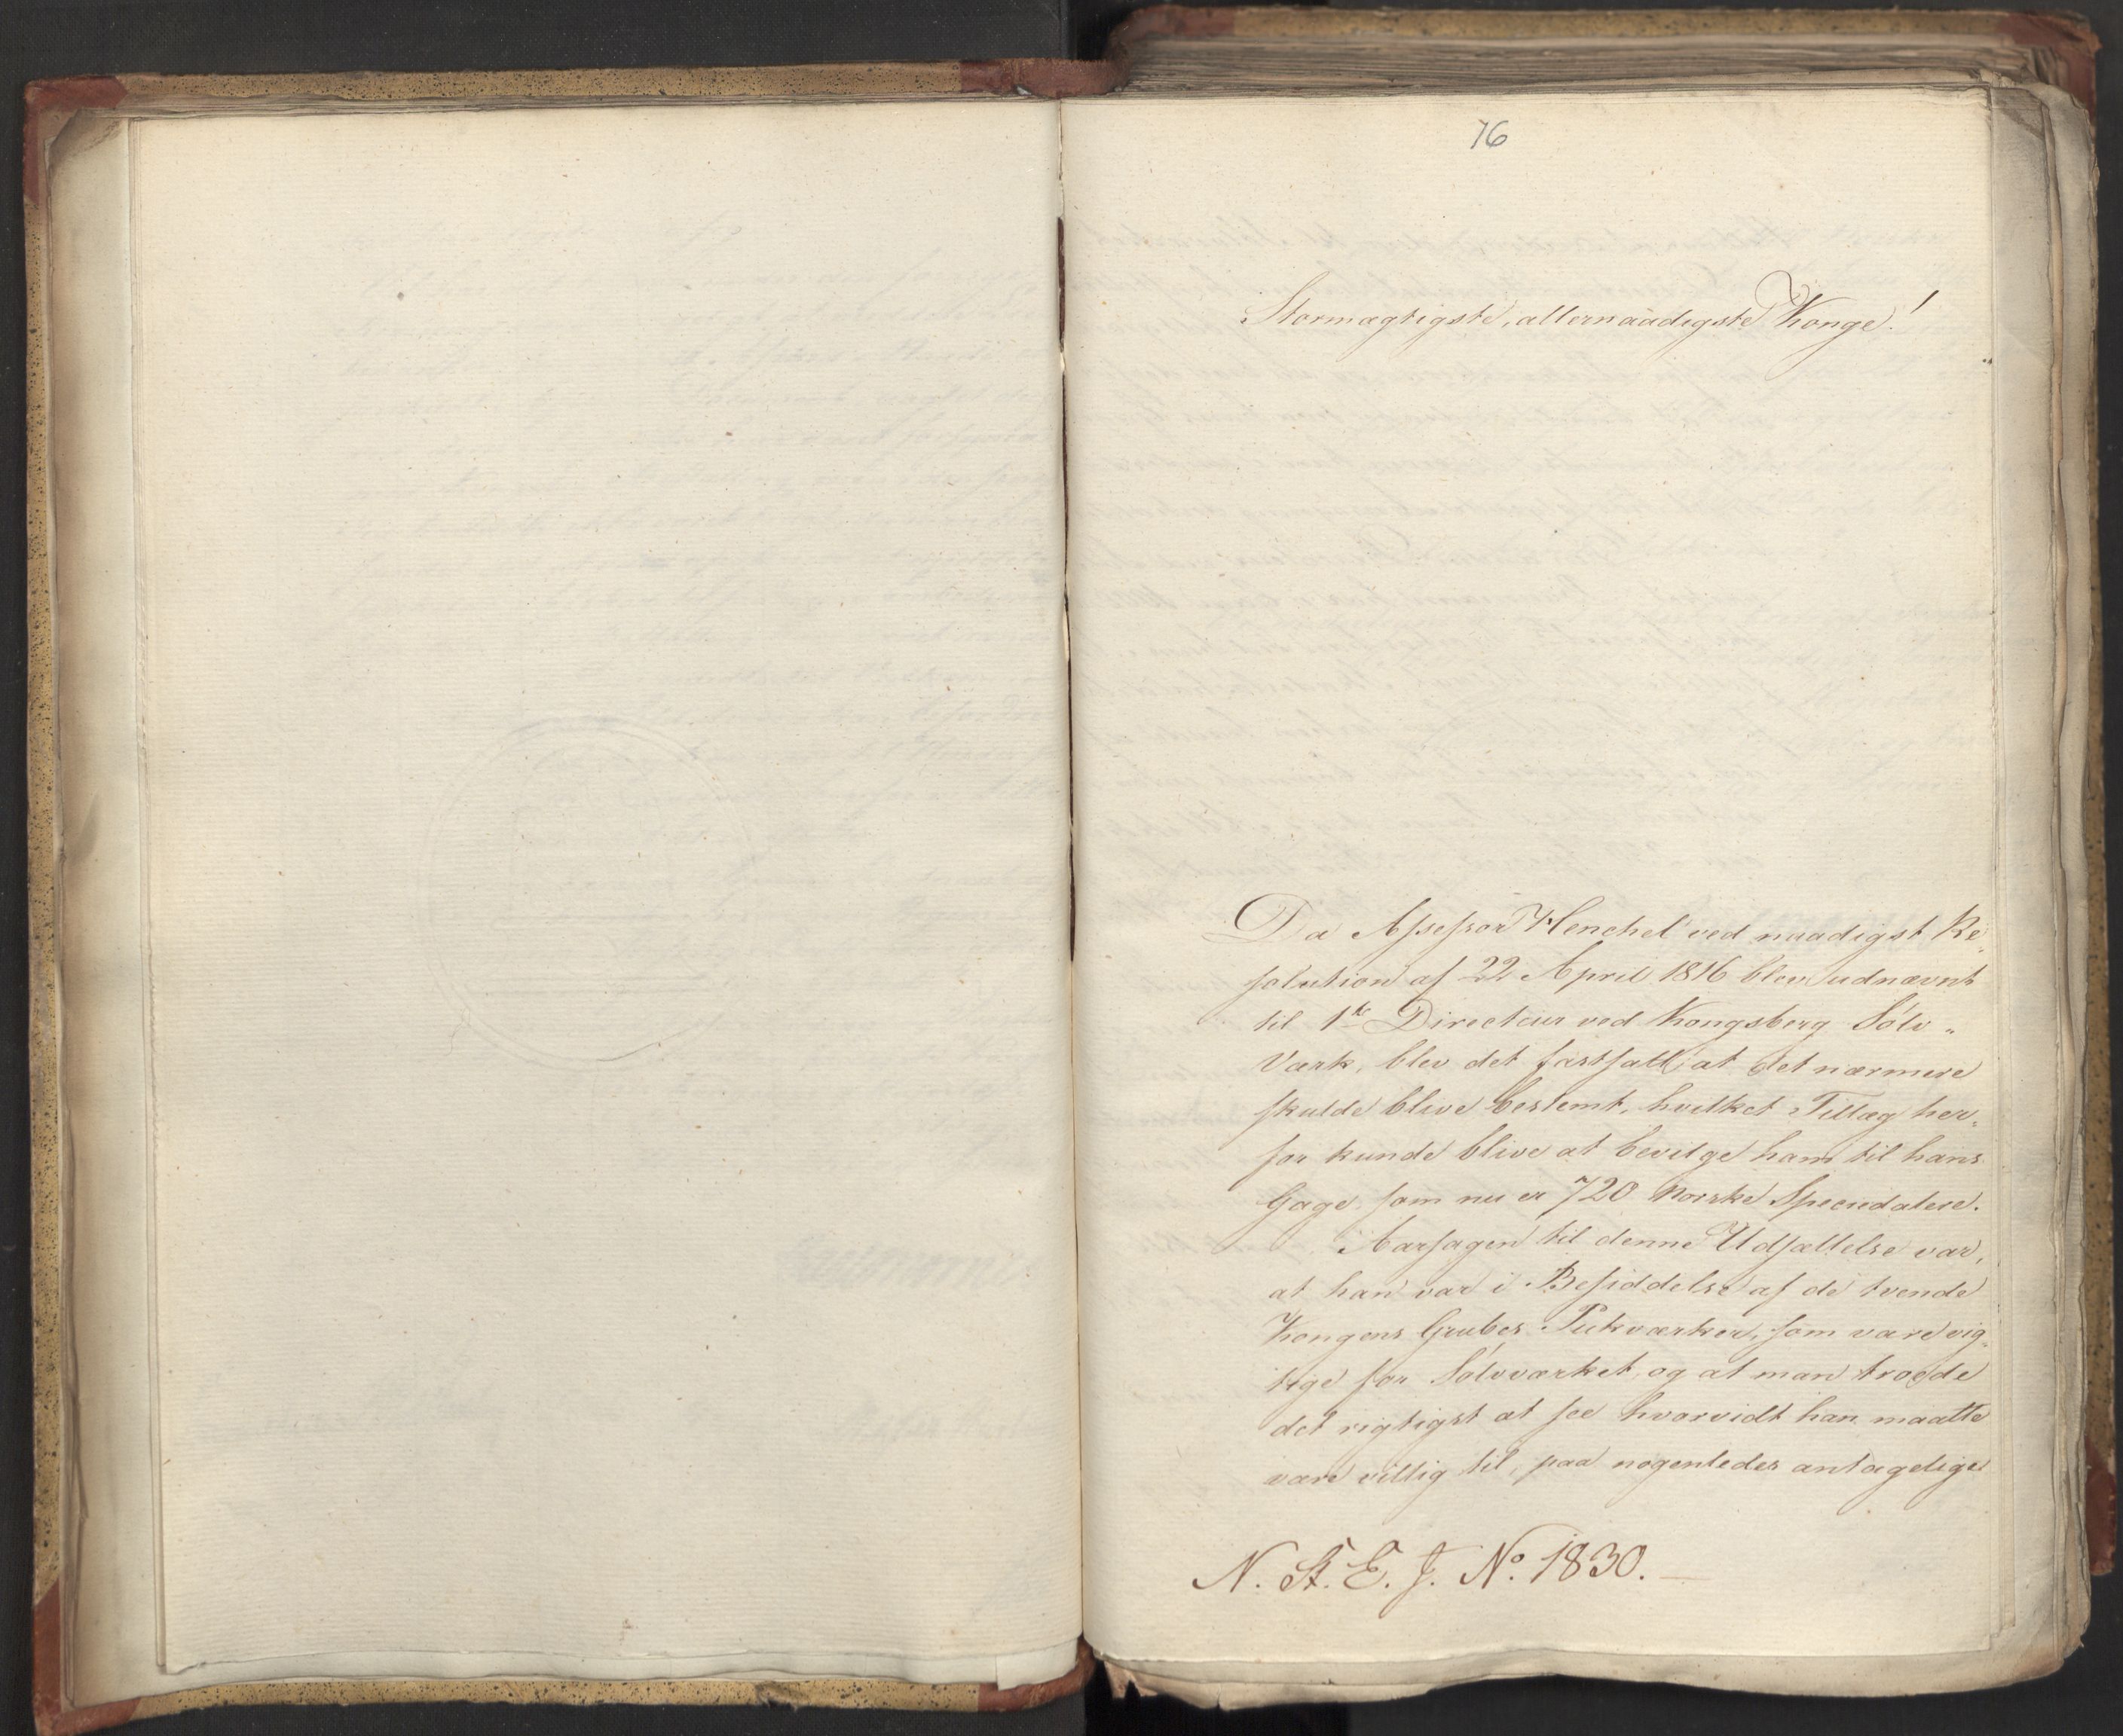 76
Stormægtigste, allernaadigste Konge!
Da Assessor Henchel ved naadigst Re„
solution af 22 April 1816 blev udnævnt
til 1ste Directeur ved Kongsberg Sölv„
Værk, blev det fastsatt, at det nærmere
skulde blive bestemt, hvilket Tillæg her„
for kunde blive at bevilge ham til hans
Gage, som nu er 720 Norske Speciedalere.
Aarsagen til denne Udsættelse var,
at han var i Besiddelse af de tvende
Kongens Grubes Pukværker, som vare vig„
tige for Sölvværket, og at man troede
det rigtigst at see hvorvidt han maatte
være villig til, paa nogenledes antagelige
N. St. E. J. No. 1830.